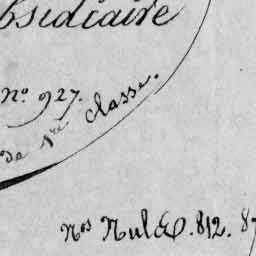 bsidiaire
No. 927.
de 1re classe.
Nos 812. 87